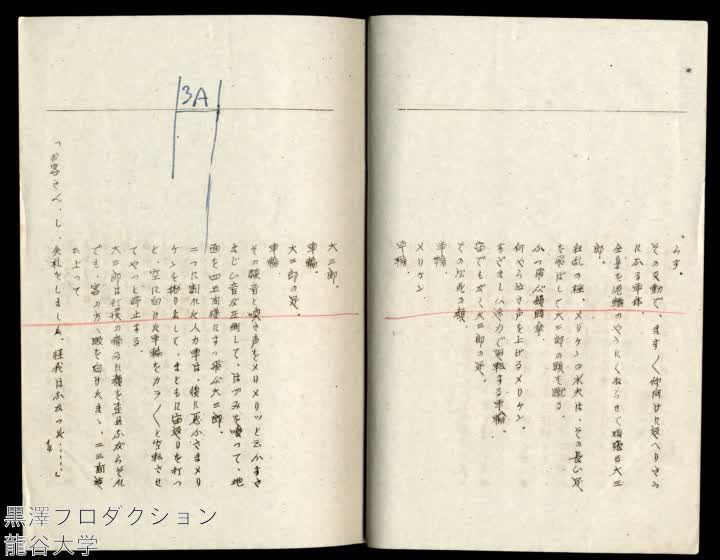 らす。
その反動で、ます〱仰向けに反へりさう
になる車体。
全身を泥鰌のやうにくねらせて頑張る大三
郎。
狂乱の極、メリケンの水夫は、その長い足
を飛ばして大三郎の頭を蹴る。
ふつ飛ぶ饅頭傘。
何やら泣き声を上げるメリケン。
すざましい速力で回転する車輪。
宙でもがく大三郎の足。
その必死の顔。
車輪。
メリケン
車輪。
3A
大三郎。
車輪。
大三郎の足。
車輪。
その騒音と喚き声をメリメリッと云ふすさ
まじい音が圧倒して、はづみを喰って、地
面を四五間様にすつ飛ぶ大三郎。
二つに割れた人力車は、後に悪ふさまメリ
ケンを拠り出して、まともに宙返りを打つ
と、空に向けた車輪をカラ〱と空転させ
てやっと停止する。
大三郎は打撲の痛みに顔を歪めながらそれ
でも、客の方へ眼を向けたまゝ、二三間這
ひ上って
「お客さん、し、失礼をしました、怪我はなかつた……」
黒澤プロダクション
龍谷大学